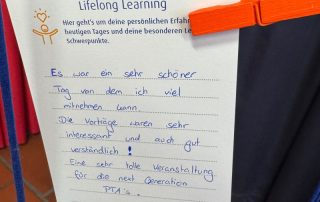 Lifelong Learning
Hier geht's um deine persönlichen Erfahr
heutigen Tages und deine besonderen Le
Schwerpunkte.
Es war ein sehr schöner
Tag von dem ich viel
mitnehmen kann.
Die Vorträge waren sehr
interessant und auch gut
verständlich!
Eine sehr tolle Veranstaltung
für die next Generation
PTA's.